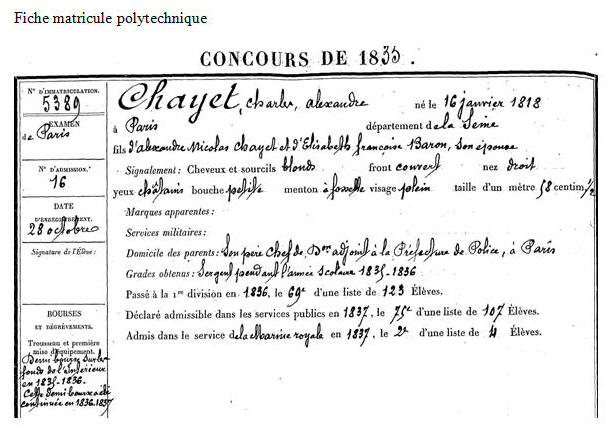 Fiche matricule polytechnique
CONCOURS DE 1835.
N° D'IMMATRICULATION.
5389
EXAMEN
de Paris
N° D'ADMISSION.
16
DATE
D'ENREGISTREMENT.
28 octobre
Signature de l'Élève :
BOURSES
ET DÉGRÈVEMENTS.
Trousseau et première
mise d'équipement.
Demi bourse sur les
fonds de l'Intérieur
en 1835-1836.
Cette demi bourse a été
continuée en 1836-1837
Chayet, Charles, alexandre né le 16 janvier 1818
à Paris département de la Seine
fils d'alexandre Nicolas Chayet et d'Elisabeth françoise Baron, son épouse
Signalement: Cheveux et sourcils blonds front couvert nez droit
yeux châtains bouche petite menton à fossette visage plein taille d'un mètre 58 centim. 1/2
Marques apparentes :
Services militaires :
Domicile des parents: Son père Chef de Bon adjoint à la Préfecture de Police, à Paris
Grades obtenus: Sergent pendant l'année scolaire 1835-1836
Passé à la 1re division en 1836, le 69e d'une liste de 123 Élèves.
Déclaré admissible dans les services publics en 1837, le 75e d'une liste de 107 Élèves.
Admis dans le service de la Marine royale en 1837, le 2e d'une liste de 4 Élèves.